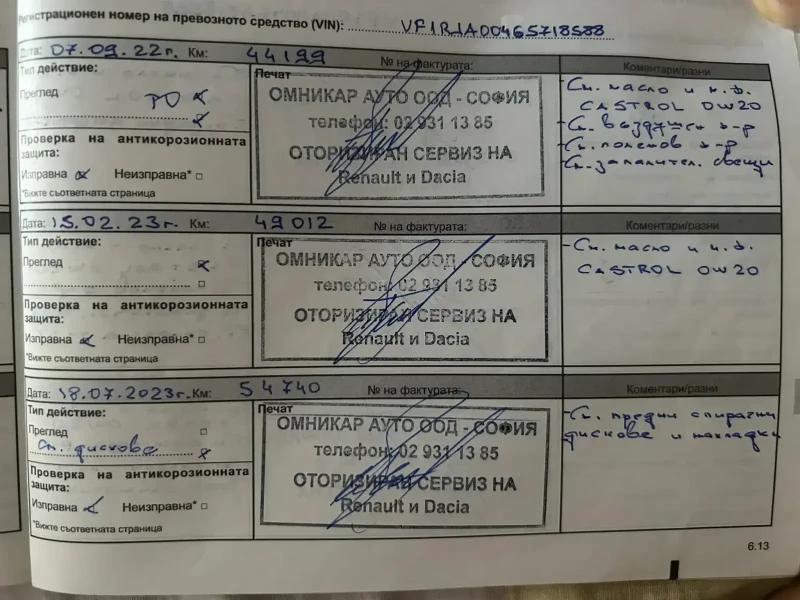 Регистрационен номер на превозното средство (VIN): VF1RJA00465718588
Дата: 07.09.22г. Км: 44199 № на фактурата: Коментари/разни
Тип действие:
Преглед ТО
Проверка на антикорозионната
защита:
Изправна Неизправна*
*Вижте съответната страница
Печат
ОМНИКАР АУТО ООД - СОФИЯ
телефон: 02 931 13 85
ОТОРИЗИРАН СЕРВИЗ НА
Renault и Dacia
- См. масло и м.ф.
CASTROL 0W20
- См. въздушен ф-р
- См. поленов ф-р
- См. запалител. свещи
Дата: 15.02.23г. Км: 49012 № на фактурата: Коментари/разни
Тип действие:
Преглед
Проверка на антикорозионната
защита:
Изправна Неизправна*
*Вижте съответната страница
Печат
ОМНИКАР АУТО ООД - СОФИЯ
телефон: 02 931 13 85
ОТОРИЗИРАН СЕРВИЗ НА
Renault и Dacia
- См. масло и м.ф.
CASTROL 0W20
Дата: 18.07.2023г. Км: 54740 № на фактурата: Коментари/разни
Тип действие:
Преглед
Сп. дискове
Проверка на антикорозионната
защита:
Изправна Неизправна*
*Вижте съответната страница
Печат
ОМНИКАР АУТО ООД - СОФИЯ
телефон: 02 931 13 85
ОТОРИЗИРАН СЕРВИЗ НА
Renault и Dacia
- См. предни спирачни
дискове и накладки
6.13